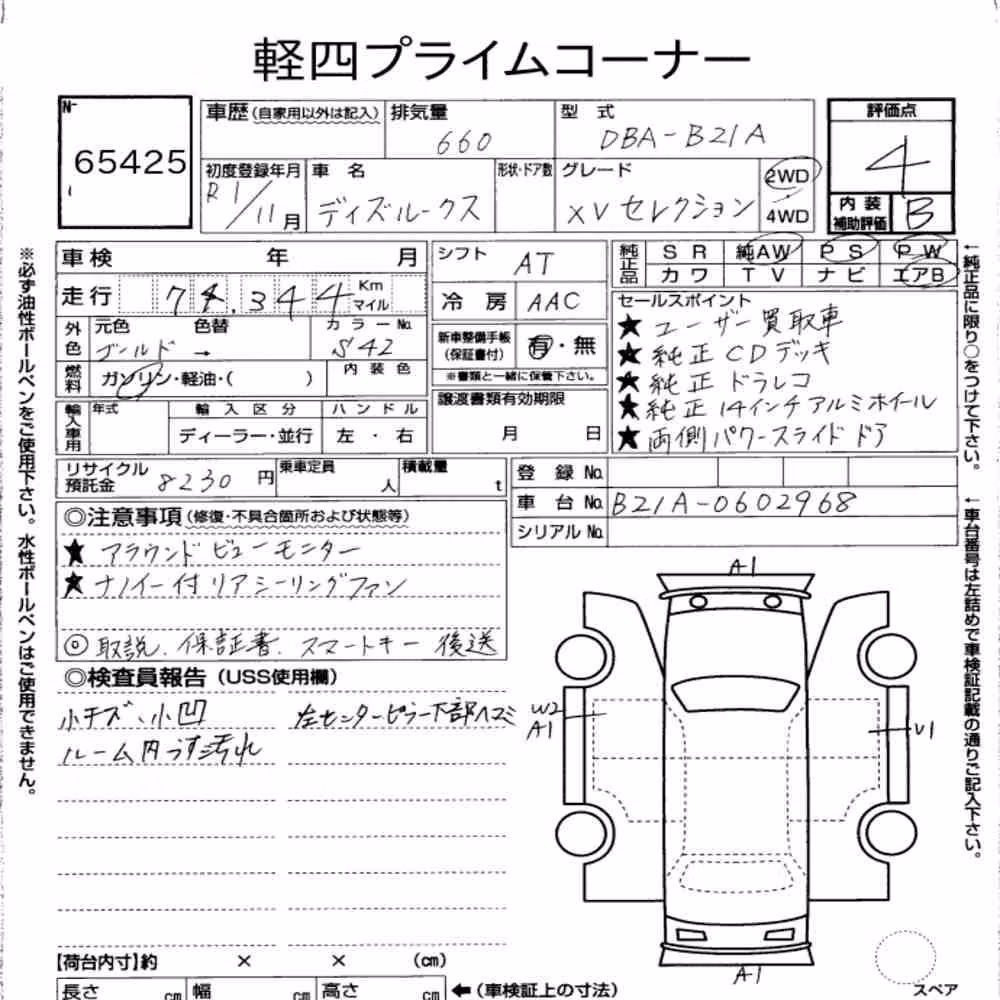 軽四プライムコーナー
No. 65425
車歴(自家用以外は記入) 排気量 660 型式 DBA-B21A
評価点 4
初度登録年月 R1/11月 車名 ディズルークス 形状・ドア数 グレード XVセレクション 2WD 4WD
内装補助評価 B
車検 年 月
走行 7 .344 Km マイル
外色 元色 ゴールド 色替 → カラーNo. S42
燃料 ガソリン・軽油・( ) 内装色
輸入車用 年式 輸入区分 ディーラー・並行 ハンドル 左・右
シフト AT
冷房 AAC
新車整備手帳(保証書付) 有・無
※書類と一緒に保管下さい。
譲渡書類有効期限
月 日
純正品 SR 純AW PS PW
カワ TV ナビ エアB
セールスポイント
★ユーザー買取車
★純正CDデッキ
★純正ドラレコ
★純正14インチアルミホイール
★両側パワースライドドア
リサイクル預託金 8230円 乗車定員 人 積載量 t
登録No.
車台No. B21A-0602968
シリアルNo.
◎注意事項(修復・不具合箇所および状態等)
★アラウンドビューモニター
★ナノイー付リアシーリングファン
◎取説、保証書、スマートキー後送
◎検査員報告(USS使用欄)
小キズ、小凹 左センターピラー下部ヘコミ
ルーム内うす汚れ
A1
W2
A1
U1
A1
スペア
【荷台内寸】約 × × (cm)
長さ cm 幅 cm 高さ cm ←(車検証上の寸法)
※必ず油性ボールペンをご使用下さい。水性ボールペンはご使用できません。
←純正品に限り○をつけて下さい。
←車台番号は左詰めで車検証記載の通りご記入下さい。